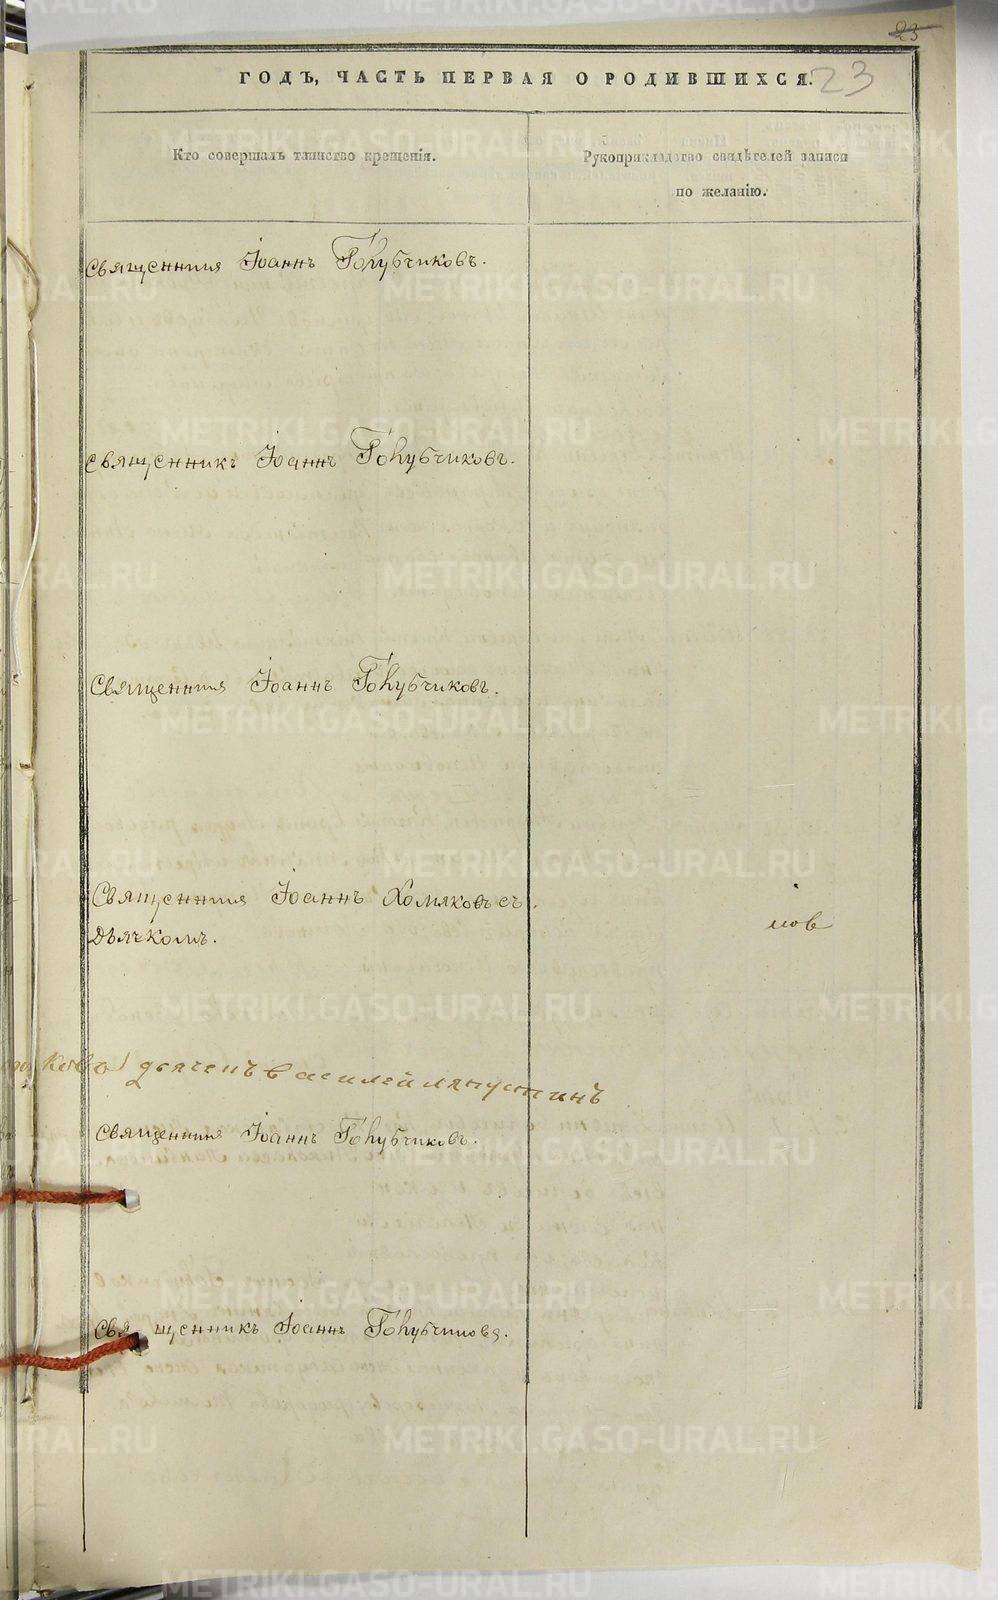 23
ГОДЪ, ЧАСТЬ ПЕРВАЯ О РОДИВШИХСЯ. 23
Кто совершалъ таинство крещенія.
Рукоприкладство свидѣтелей записи
по желанію.
Священникъ Іоаннъ Голубчиковъ.
Священникъ Іоаннъ Голубчиковъ.
Священникъ Іоаннъ Голубчиковъ.
Священникъ Іоаннъ Хомяковъ съ
Дьячкомъ.
нов
дьячекъ Василей Ляпустинъ
Священникъ Іоаннъ Голубчиковъ.
Священникъ Іоаннъ Голубчиковъ.
METRIKI.GASO-URAL.RU